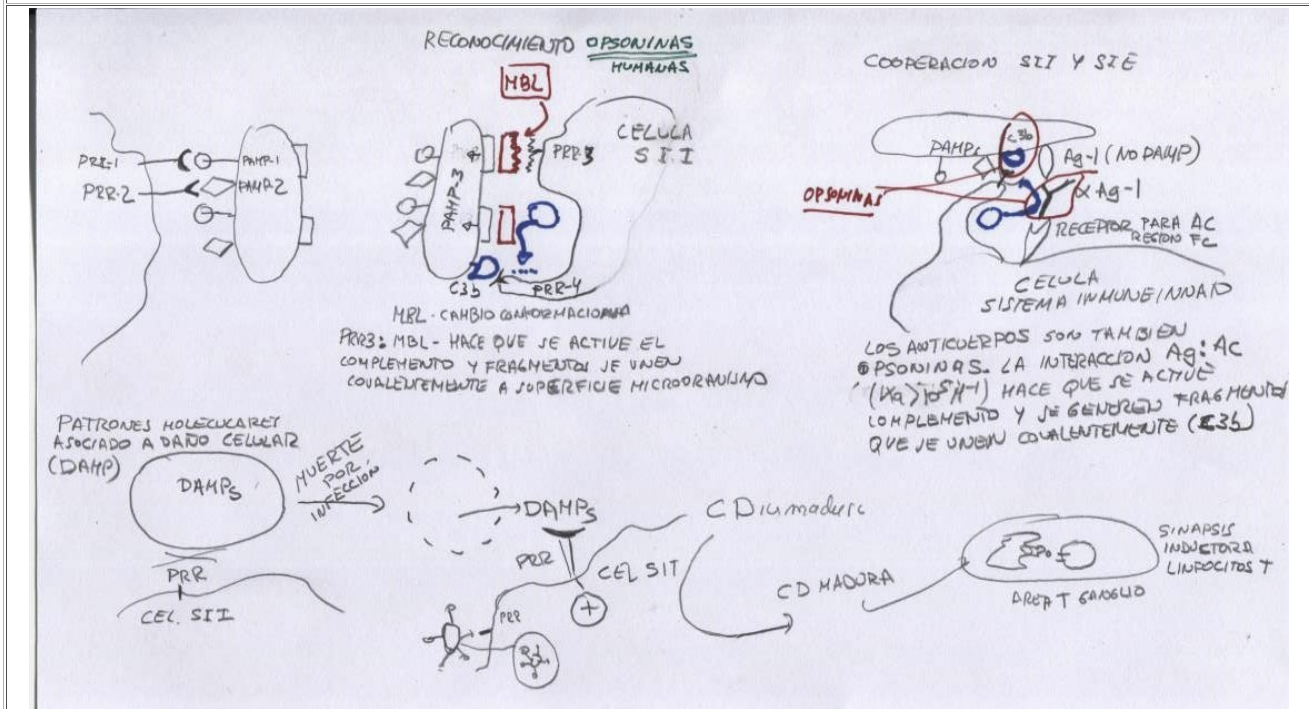 RECONOCIMIENTO OPSONINAS
HUMANAS
MBL
PRR-1
PRR-2
PAMP-1
PAMP2
PAMP-3
PRR3
CELULA
S.I.I
C3b
PRR-4
MBL-CAMBIO CONFORMACIONAL
PRR3: MBL - HACE QUE SE ACTIVE EL
COMPLEMENTO Y FRAGMENTOS SE UNEN
COVALENTEMENTE A SUPERFICIE
COOPERACION SII Y SIE
PAMPs
C3b
Ag-1 (NO PAMP)
α Ag-1
OPSONINAS
RECEPTOR PARA AC
REGION FC
CELULA
SISTEMA INMUNE INNATO
LOS ANTICUERPOS SON TAMBIEN
OPSONINAS. LA INTERACCION Ag:AC
HACE QUE SE ACTIVE
COMPLEMENTO Y SE GENEREN FRAGMENTOS
QUE SE UNEN COVALENTEMENTE (C3b)
PATRONES MOLECULARES
ASOCIADO A DAÑO CELULAR
(DAMP)
DAMPs
PRR
CEL. SII
MUERTE
POR
INFECCION
DAMPs
PRR
CEL SII
+
P
PRR
CD inmadura
CD MADURA
AREA T GANGLIO
SINAPSIS
INDUCTORA
LINFOCITOS T